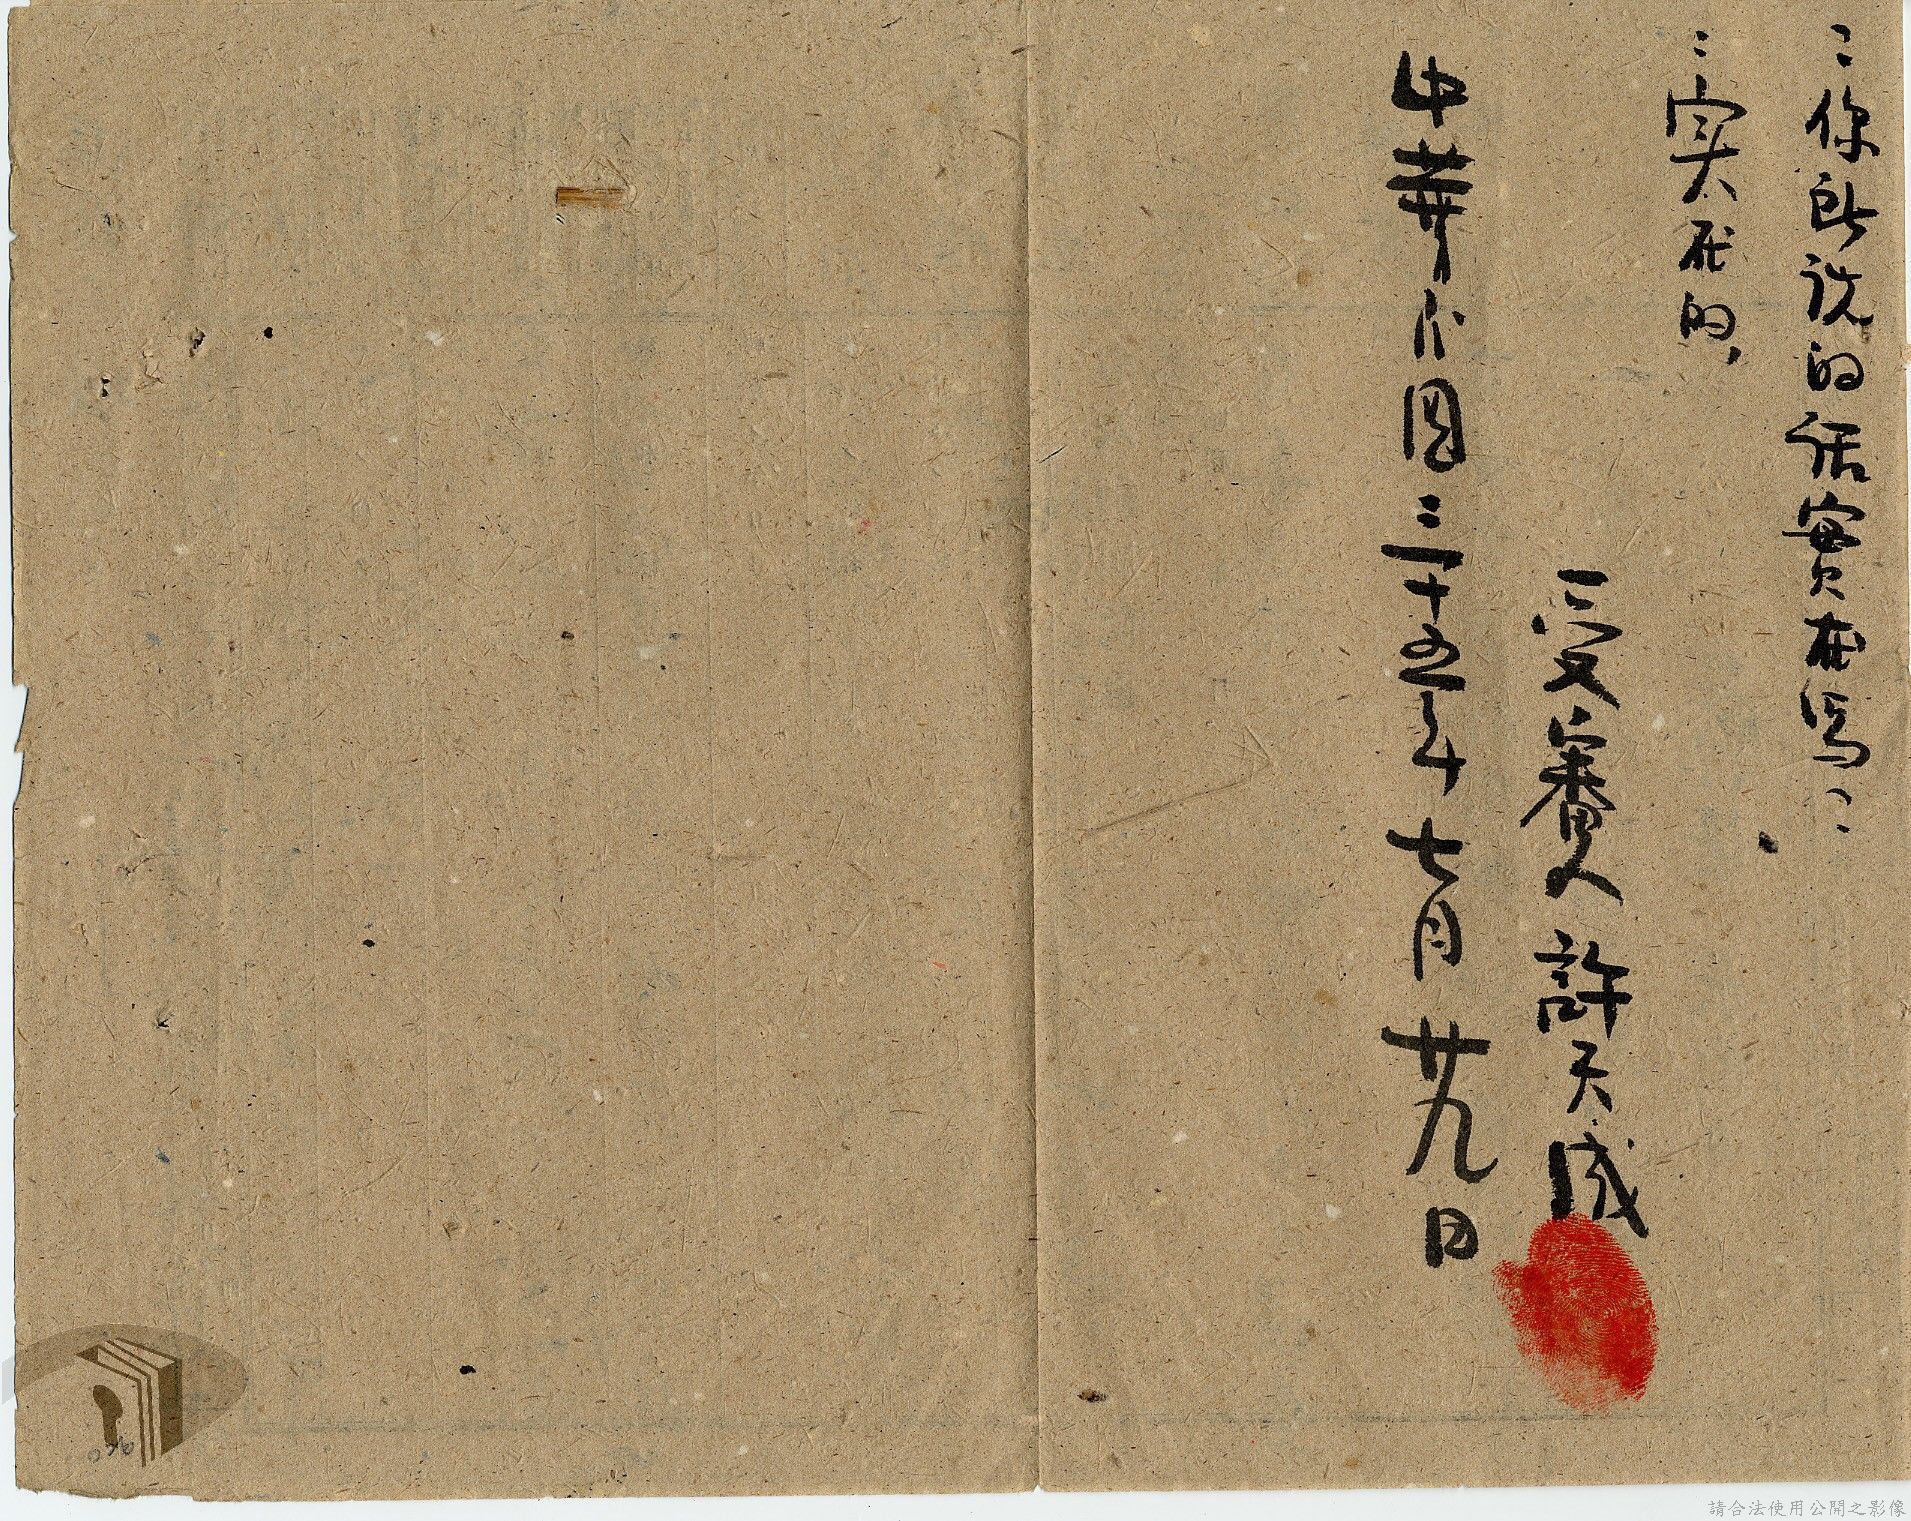 ：你所說的話實在嗎：
：实在的，
受審人 許天成
中華民國三十五年七月廿九日
070
請合法使用公開之影像